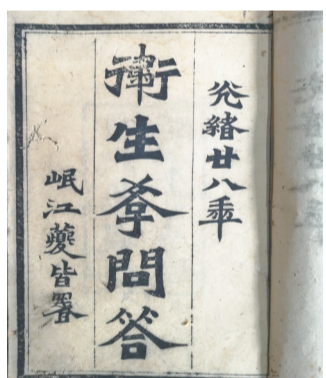 光緒廿八年
衛生學問答
岷江夔皆署